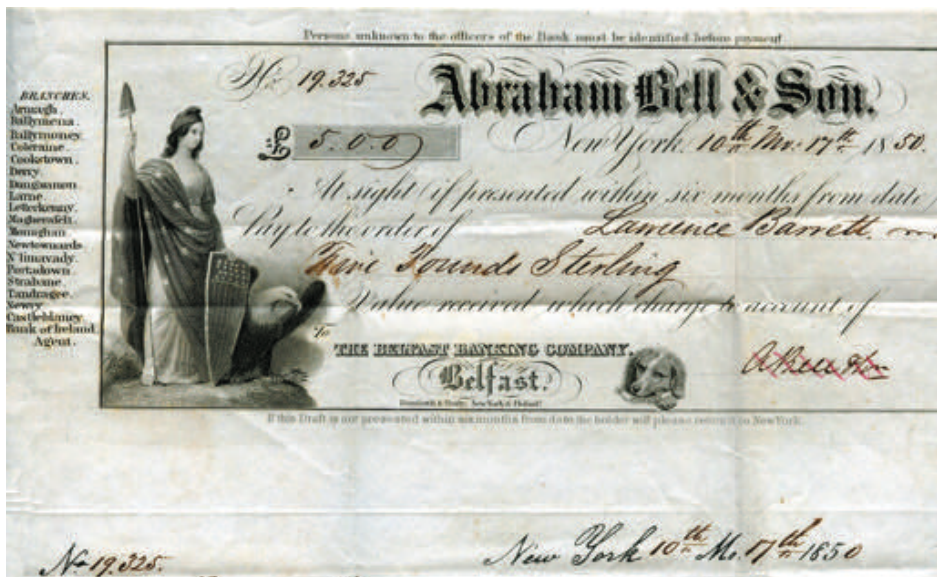 Persons unknown to the officers of the Bank must be identified before payment
No. 19.325
Abraham Bell & Son.
£ 5.0.0
New York, 10th Mo. 17th 1850.
BRANCHES.
Armagh.
Ballymena.
Ballymoney.
Coleraine.
Cookstown.
Derry.
Dungannon.
Larne.
Letterkenny.
Magherafelt.
Monaghan.
Newtownards.
N Limavady.
Portadown.
Strabane.
Tandragee.
Newry.
Castleblaney.
Bank of Ireland
Agent.
At sight (if presented within six months from date)
Pay to the order of Lawrence Barrett
Five Pounds Sterling
Value received which charge to account of
To
THE BELFAST BANKING COMPANY.
Belfast.
A Bell & Son
If this Draft is not presented within six months from date the holder will please return it to New York.
No. 19.325.
New York 10th Mo. 17th 1850